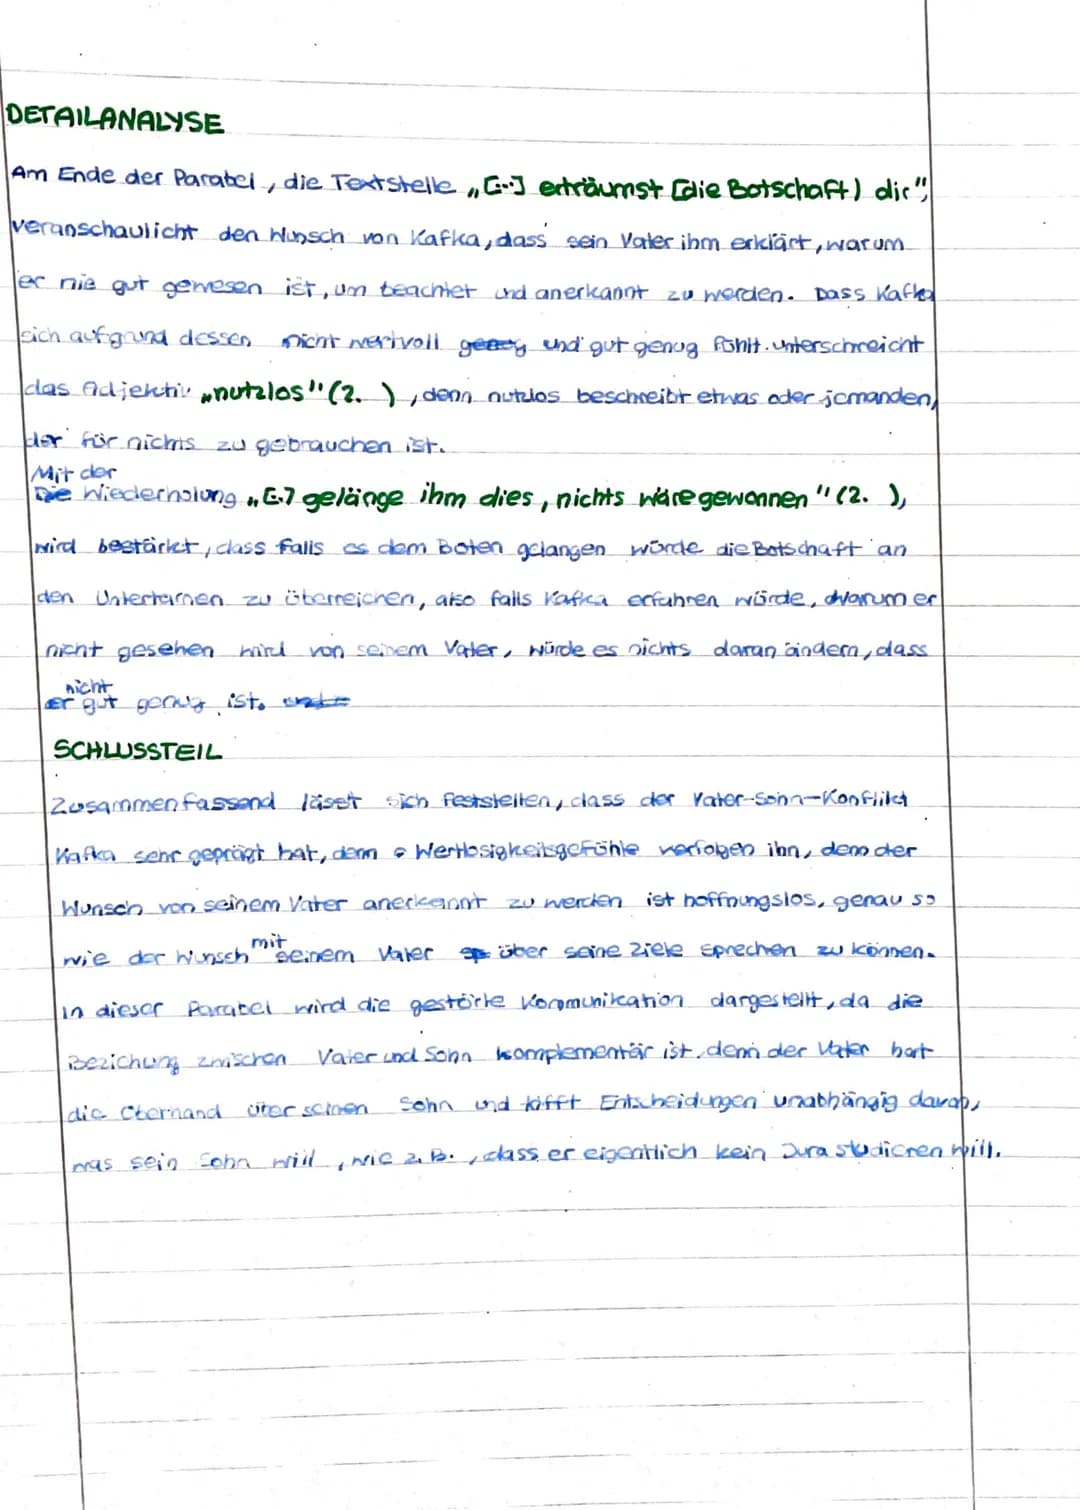 DETAILANALYSE
Am Ende der Parabel, die Textstelle „[...] erträumst [die Botschaft) dir",
veranschaulicht den Wunsch von Kafka, dass sein Vater ihm erklärt, warum
er nie gut gewesen ist, um beachtet und anerkannt zu werden. Dass Kafka
sich aufgrund dessen nicht wertvoll und gut genug fühlt. unterschreicht
das Adjektiv „nutzlos" (Z. ), denn nutzlos beschreibt etwas oder jemanden,
der für nichts zu gebrauchen ist.
Mit der
Die Wiederholung „[..] gelänge ihm dies, nichts wäre gewonnen" (Z. ),
wird bestärket, dass falls es dem Boten gelangen würde die Botschaft an
den Untertarnen zu überreichen, also falls Kafka erfahren würde, warum er
nicht gesehen wird von seinem Vater, würde es nichts daran ändern, dass
nicht
er gut genug ist.
SCHLUSSTEIL
Zusammenfassend lässt sich feststellen, dass der Vater-Sohn-Konflikt
Kafka sehr geprägt hat, denn Wertlosigkeitsgefühle verfolgen ihn, denn der
Wunsch von seinem Vater anerkannt zu werden ist hoffnungslos, genau so
wie der Wunsch mit seinem Vater über seine Ziele sprechen zu können.
In dieser Parabel wird die gestörte Kommunikation dargestellt, da die
Beziehung zwischen Vater und Sohn komplementär ist, denn der Vater hat
die Oberhand über seinen Sohn und trifft Entscheidungen unabhängig davon,
was sein Sohn will, wie z. B., dass er eigentlich kein Jura studieren will.